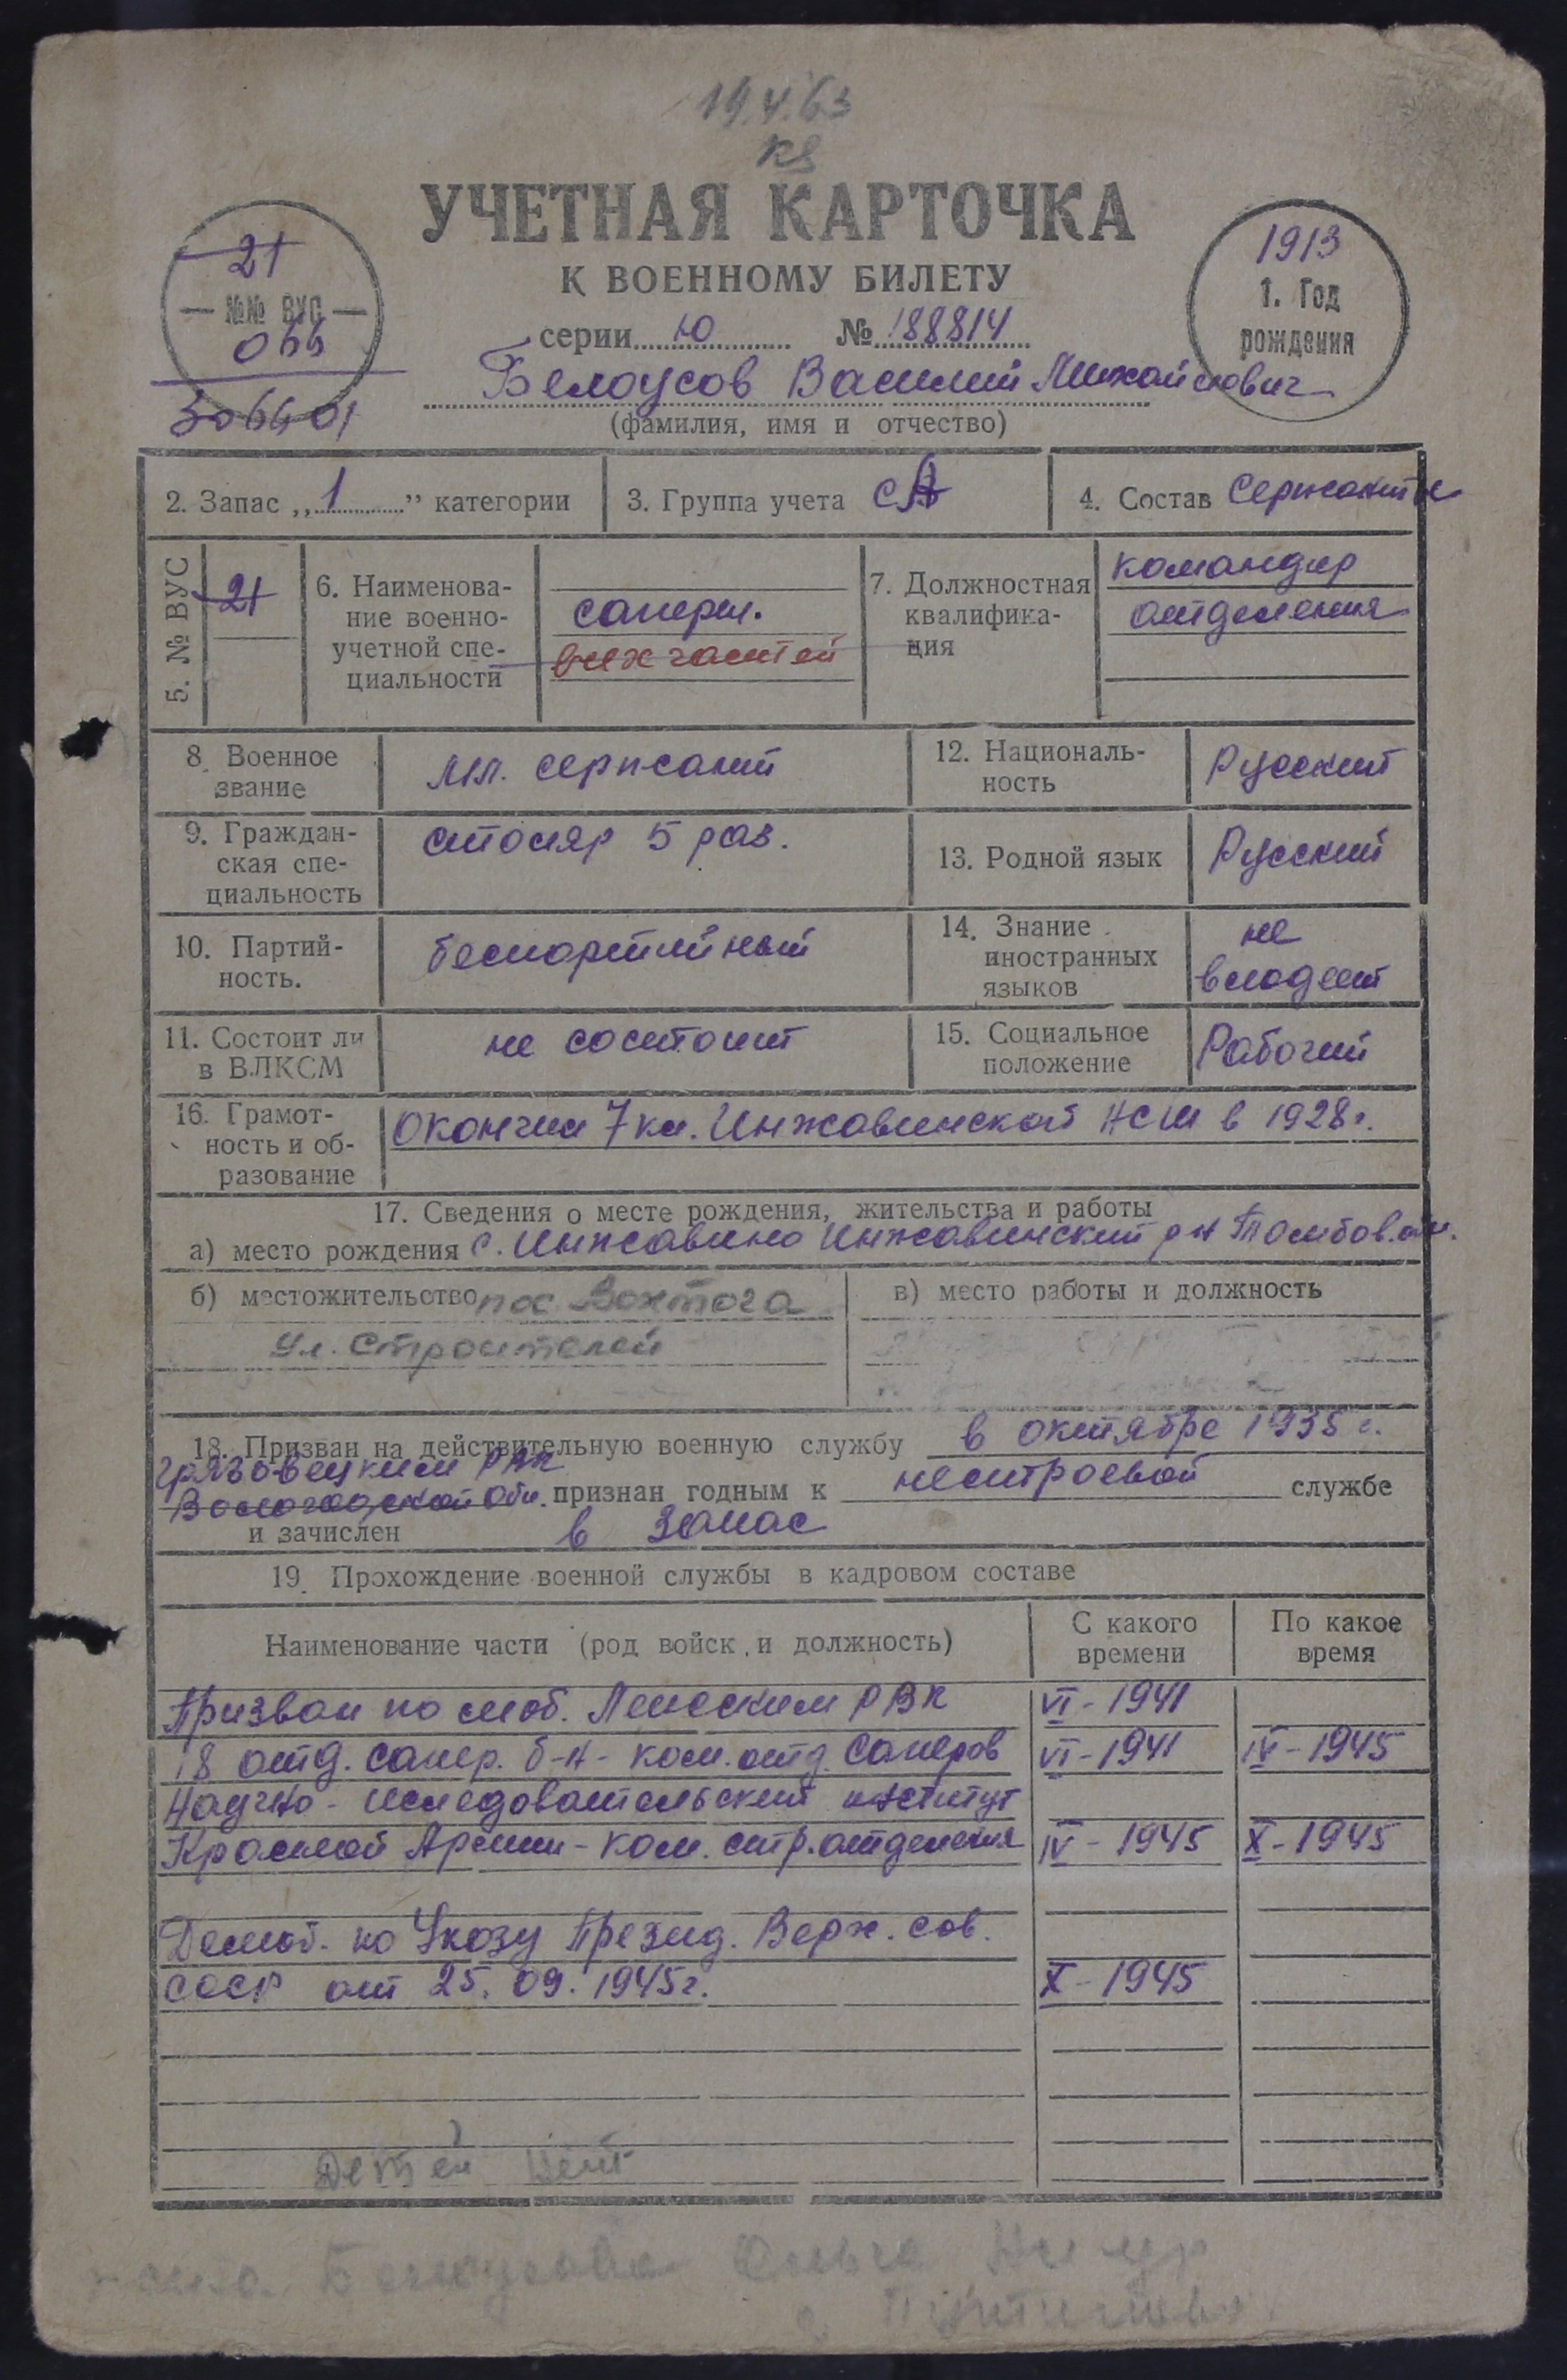 19.V.63
УЧЕТНАЯ КАРТОЧКА
К ВОЕННОМУ БИЛЕТУ
серии Ю № 188814
21
— №№ ВУС —
066
306601
1913
1. Год
рождения
Белоусов Василий Михайлович
(фамилия, имя и отчество)
2. Запас „1" категории
3. Группа учета СА
4. Состав Сержанты
5. № ВУС
21
6. Наименова-
ние военно-
учетной спе-
циальности
саперн.
всех частей
7. Должностная
квалифика-
ция
командир
отделения
8. Военное
звание
мл. сержант
12. Националь-
ность
Русский
9. Граждан-
ская спе-
циальность
столяр 5 раз.
13. Родной язык
Русский
10. Партий-
ность.
беспартийный
14. Знание
иностранных
языков
не
владеет
11. Состоит ли
в ВЛКСМ
не состоит
15. Социальное
положение
Рабочий
16. Грамот-
ность и об-
разование
окончил 7 кл. Инжавинской НСШ в 1928г.
17. Сведения о месте рождения, жительства и работы
а) место рождения с. Инжавино Инжавинский р-н Тамбов. обл.
б) местожительство пос. Вохтога
ул. Строителей
в) место работы и должность
18. Призван на действительную военную службу в октябре 1935 г.
Грязовецким РВК
Вологодской Обл. признан годным к нестроевой службе
и зачислен в запас
19. Прохождение военной службы в кадровом составе
Наименование части (род войск и должность)
С какого
времени
По какое
время
Призван по моб. Ленским РВК VI - 1941
18 отд. сапер. б-н - ком. отд. саперов VI - 1941 IV - 1945
Научно - исследовательский институт
Красной Армии - ком. стр. отделения IV - 1945 X - 1945
Демоб. по Указу Презид. Верх. сов.
СССР от 25. 09. 1945г. X - 1945
Детей нет
Белоусова Ольга